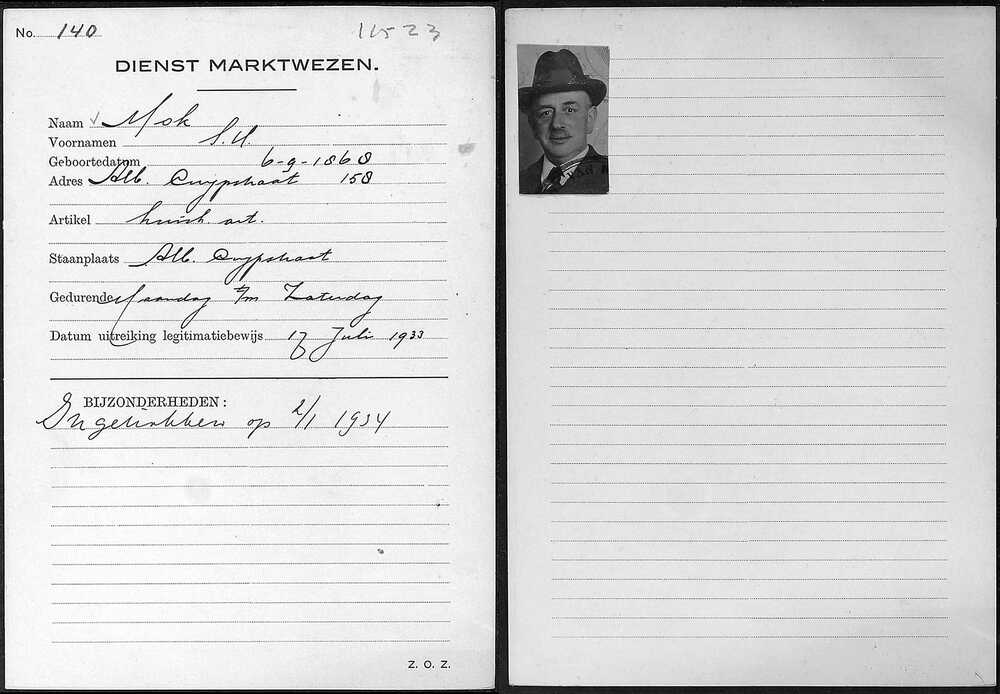 No. 140 11523
DIENST MARKTWEZEN.
Naam Mok
Voornamen S.H.
Geboortedatum 6-9-1868
Adres Alb. Cuypstraat 158
Artikel huish. art.
Staanplaats Alb. Cuypstraat
Gedurende Maandag t/m Zaterdag
Datum uitreiking legitimatiebewijs 17 Juli 1933
BIJZONDERHEDEN:
Ingetrokken op 2/1 1934
Z. O. Z.